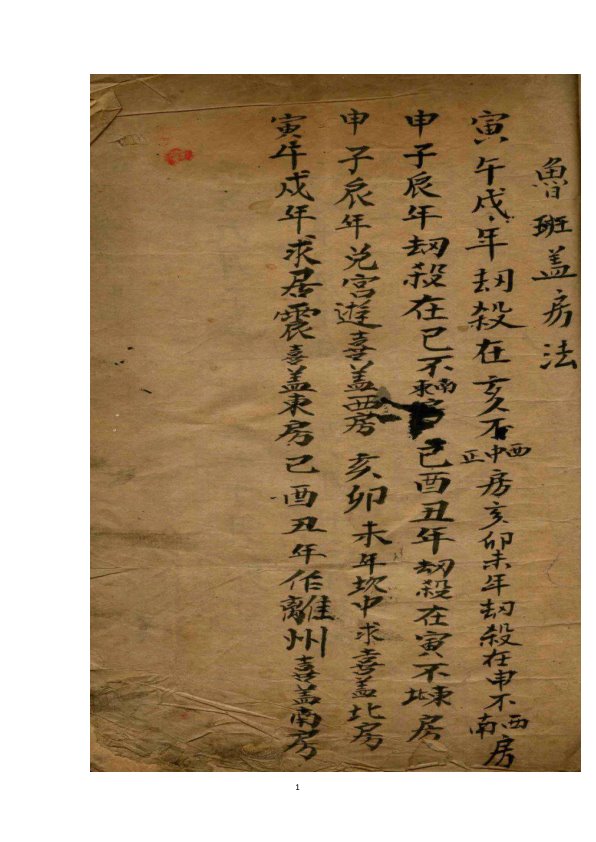 魯班盖房法
寅午戍年刼殺在亥不正中西房亥卯未年刼殺在申不南西房
申子辰年刼殺在巳不東南巳酉丑年刼殺在寅不北東房
申子辰年兑宫遊喜盖西房亥卯未年坎中求喜盖北房
寅午戍年求居震喜盖東房巳酉丑年作離州喜盖南房
1